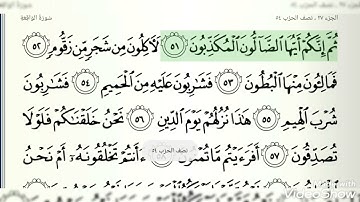 الجزء ٢٧ ، نصف الحزب ٥٤
سورة الواقعة
ثُمَّ إِنَّكُمْ أَيُّهَا ٱلضَّآلُّونَ ٱلْمُكَذِّبُونَ ٥١ لَـَٔاكِلُونَ مِن شَجَرٍ مِّن زَقُّومٍ ٥٢
فَمَالِـُٔونَ مِنْهَا ٱلْبُطُونَ ٥٣ فَشَـٰرِبُونَ عَلَيْهِ مِنَ ٱلْحَمِيمِ ٥٤ فَشَـٰرِبُونَ
شُرْبَ ٱلْهِيمِ ٥٥ هَـٰذَا نُزُلُهُمْ يَوْمَ ٱلدِّينِ ٥٦ نَحْنُ خَلَقْنَـٰكُمْ فَلَوْلَا
تُصَدِّقُونَ ٥٧ أَفَرَءَيْتُم مَّا تُمْنُونَ ٥٨ ءَأَنتُمْ تَخْلُقُونَهُۥٓ أَمْ نَحْنُ
نصف الحزب ٥٤
VideoShow